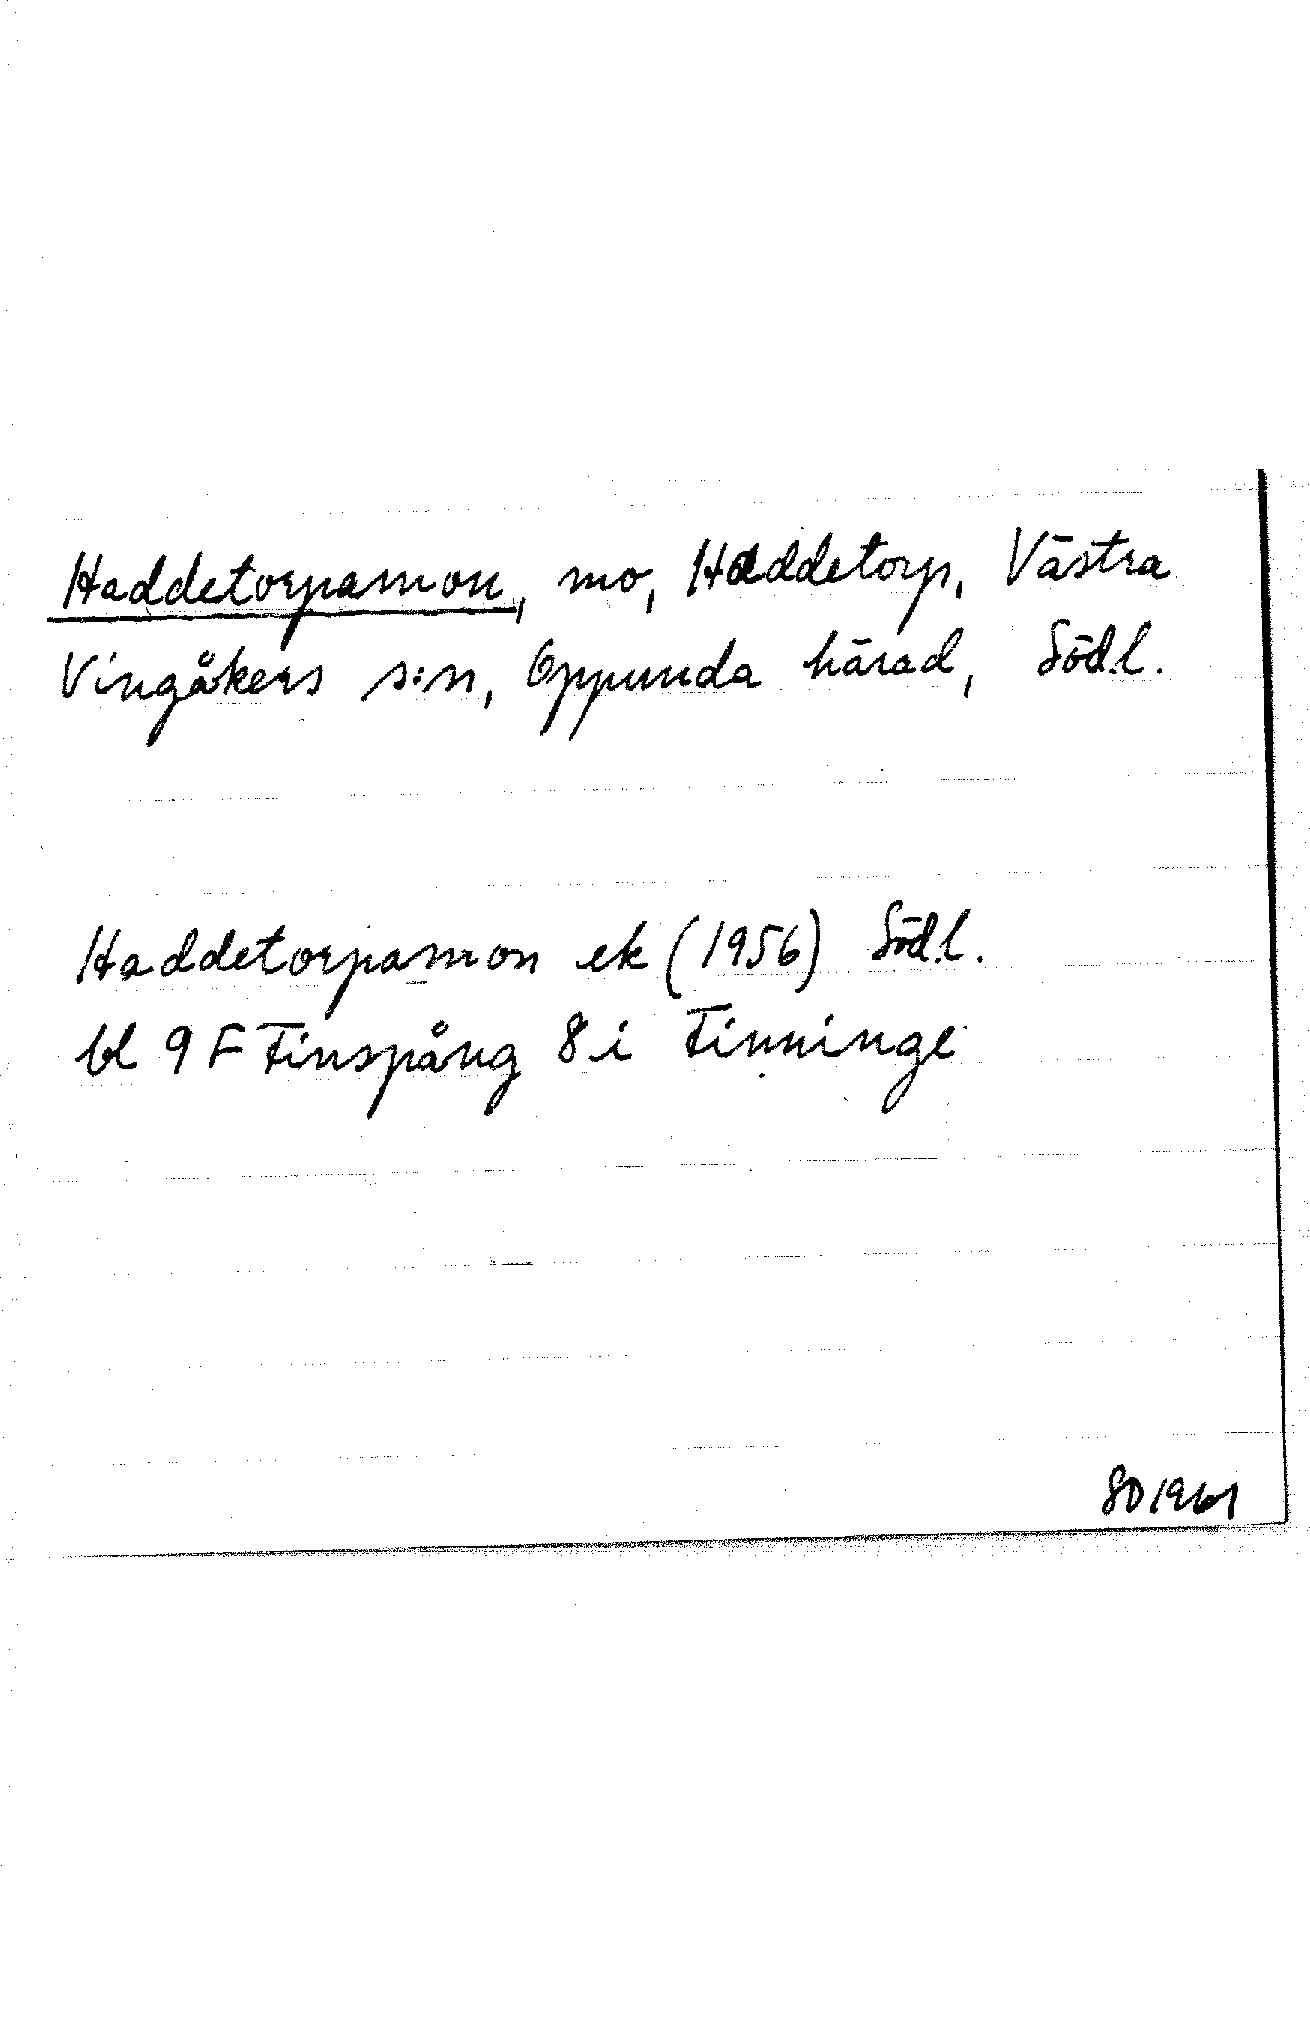 Haddetorpamon, mo, Haddetorp, Västra
Vingåkers s:n, Oppunda härad, Södl.
Haddetorpamon ek (1956) Södl.
bl 9 F Finspång 8 i Finninge
SD 1961